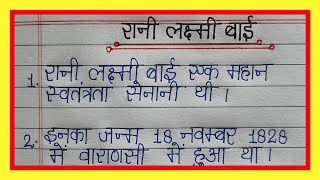 रानी लक्ष्मी बाई
1. रानी लक्ष्मी बाई एक महान
स्वतंत्रता सेनानी थी।
2. इनका जन्म 18 नवम्बर 1828
में वाराणसी में हुआ था।